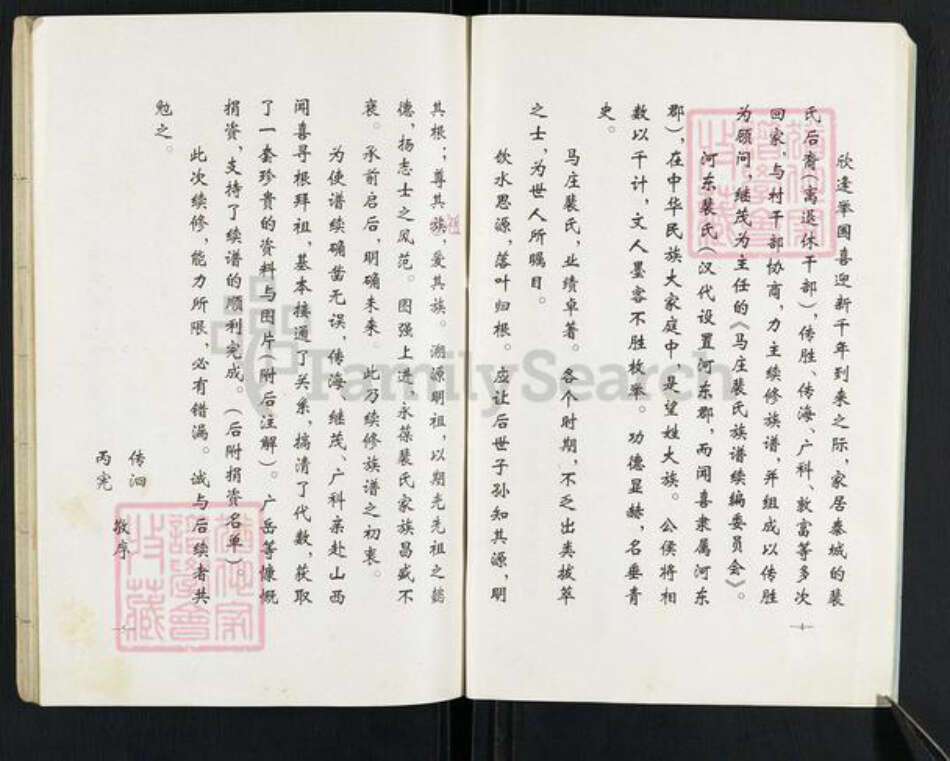 欣逢举国喜迎新千年到来之际，家居秦城的裴
氏后裔（离退休干部），传胜、传海、广科、敦富等多次
回家，与村干部协商，力主续修族谱，并组成以传胜
为顾问，继茂为主任的《马庄裴氏族谱续编委员会》。
河东裴氏（汉代设置河东郡，而闻喜隶属河东
郡），在中华民族大家庭中，是望姓大族。公侯将相
数以千计，文人墨客不胜枚举。功德显赫，名垂青
史。
马庄裴氏，业绩卓著。各个时期，不乏出类拔萃
之士，为世人所瞩目。
饮水思源，落叶归根。应让后世子孙知其源，明
—1—
其根；尊其族，爱其族。溯源明祖，以期光先祖之懿
祖
德，扬志士之风范。图强上进，永葆裴氏家族昌盛不
衰。承前启后，明确未来。此乃续修族谱之初衷。
为使谱续确凿无误，传海、继茂、广科亲赴山西
闻喜寻根拜祖，基本接通了关系，搞清了代数，获取
了一套珍贵的资料与图片（附后注解）。广岳等慷慨
捐资，支持了续谱的顺利完成。（后附捐资名单）。
此次续修，能力所限，必有错漏。诚与后续者共
勉之。
传泗
丙宪
敬序
FamilySearch
收藏
谱学会